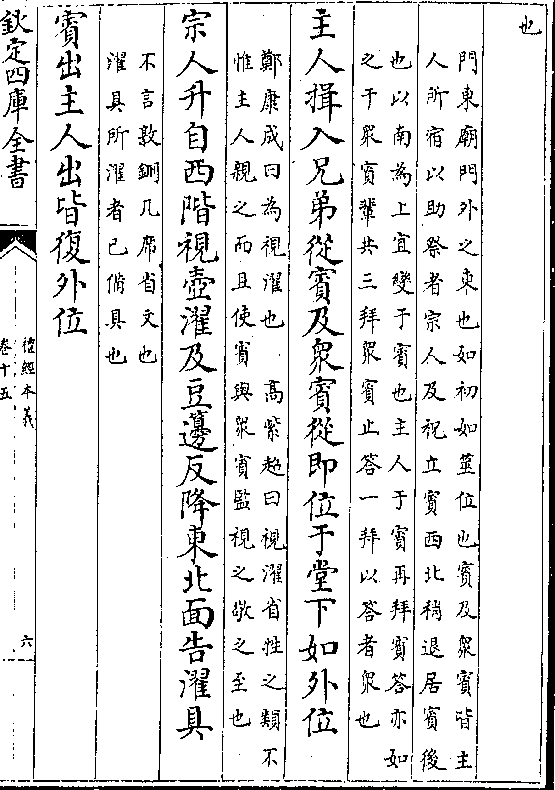 也
門東廟門外之東也如初如筮位也賓及衆賓皆主
人所宿以助祭者宗人及祝立賓西北稍退居賓後
也以南為上宜變于賓也主人于賓再拜賓答亦如
之于衆賓輩共三拜衆賓止答一拜以答者衆也
主人揖入兄弟從賓及衆賓從即位于堂下如外位
鄭康成曰為視濯也　高紫超曰視濯省牲之類不
惟主人親之而且使賓與衆賓監視之敬之至也
宗人升自西階視壺濯及豆籩反降東北面告濯具
不言敦鉶几席省文也
濯具所濯者已備具也
賓出主人出皆復外位
欽定四庫全書
禮經本義
卷十五
六